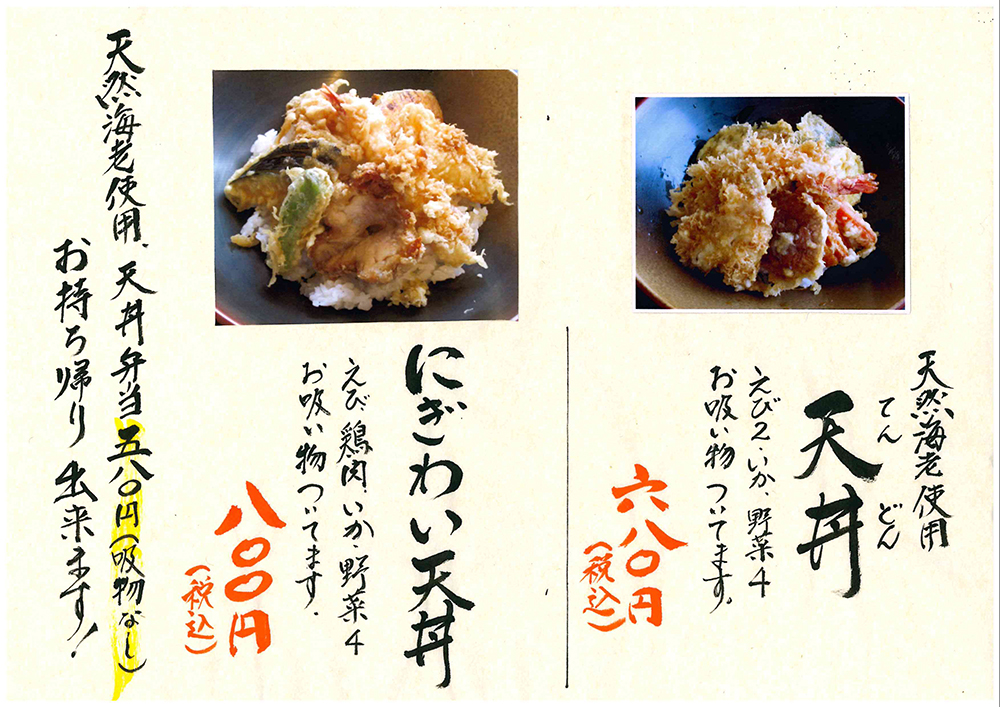 天然海老使用
天丼
てん どん
えび2、いか、野菜4
お吸い物ついてます。
六八〇円
(税込)
にぎわい天丼
えび、鶏肉、いか、野菜4
お吸い物ついてます。
八〇〇円
(税込)
天然海老使用、天丼弁当五八〇円(吸物なし)
お持ち帰り出来ます!